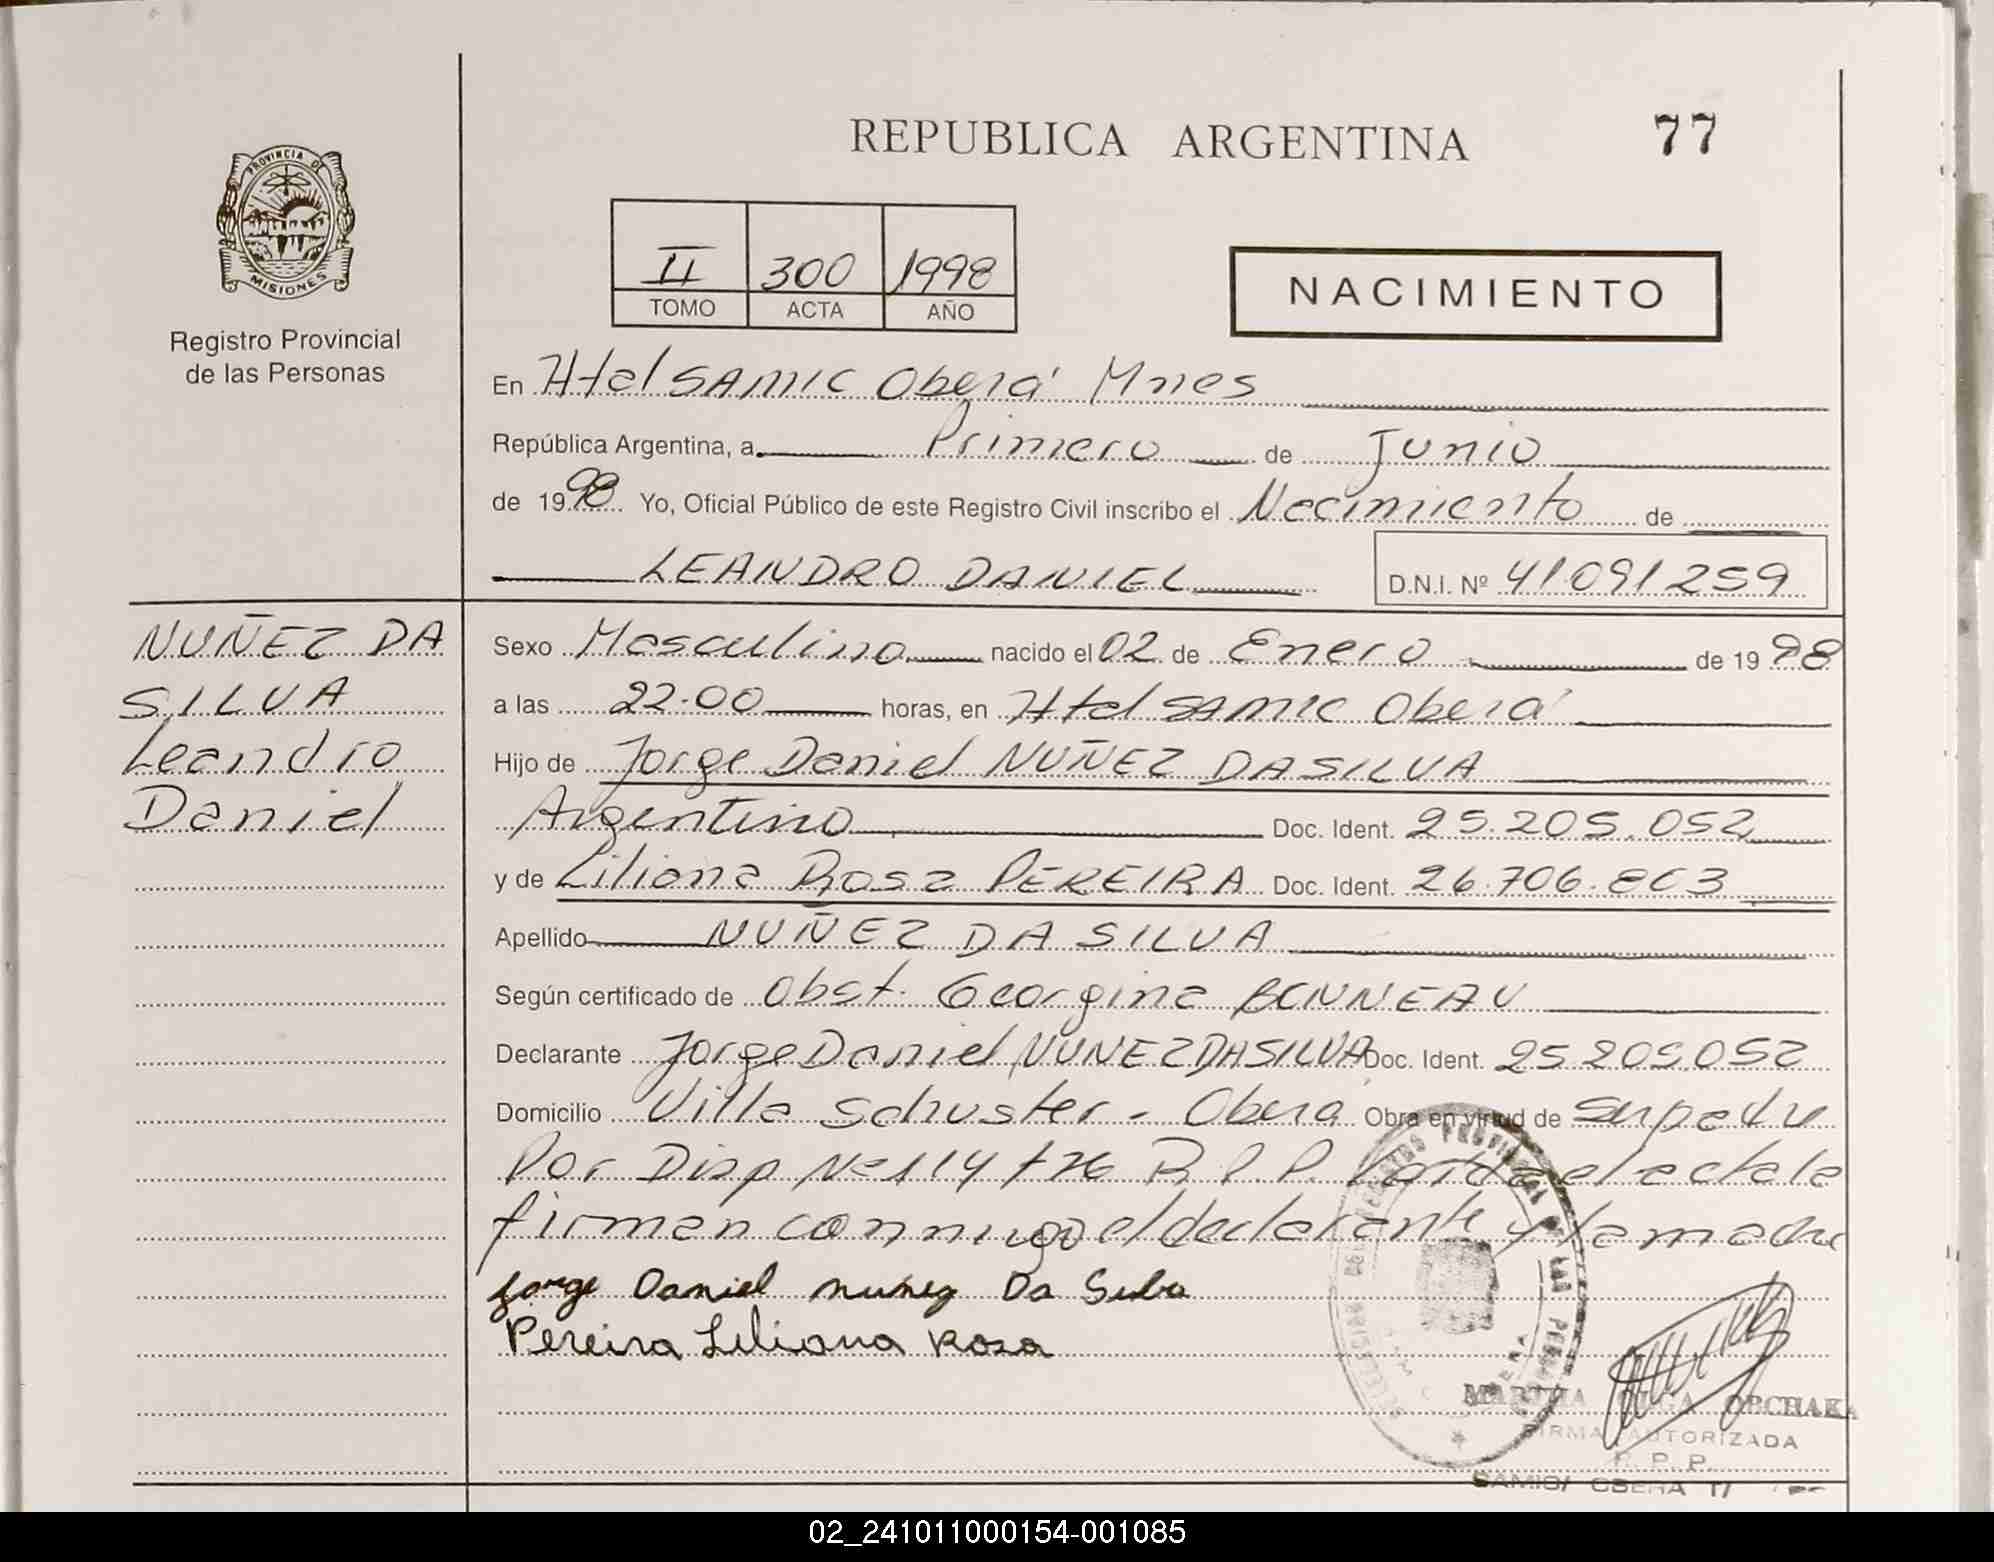 REPUBLICA ARGENTINA
77
PROVINCIA DE
MISIONES
Registro Provincial
de las Personas
II 300 1998
TOMO ACTA AÑO
NACIMIENTO
En Htal SAMIC Oberá Mnes
República Argentina, a Primero de Junio
de 1998 Yo, Oficial Público de este Registro Civil inscribo el Nacimiento de
LEANDRO DANIEL D.N.I. Nº 41091259
NUÑEZ DA
SILVA
Leandro
Daniel
Sexo Masculino nacido el 02 de Enero de 1998
a las 22.00 horas, en Htal SAMIC Oberá
Hijo de Jorge Daniel NUÑEZ DASILVA
Argentino Doc. Ident. 25.205.052
y de Liliana Rosa PEREIRA Doc. Ident. 26.706.803
Apellido NUÑEZ DA SILVA
Según certificado de Obst. Georgina BONNEAU
Declarante Jorge Daniel NUNEZ DASILVA Doc. Ident. 25.205.052
Domicilio Villa Schuster - Obera Obra en virtud de
Por Disp Nº 114/76 R.P.P. el acta la
firman conmigo el declarante y la madre
Jorge Daniel nuñez Da Silva
Pereira Liliana Rosa
MARTHA OLGA
FIRMA AUTORIZADA
R. P. P.
02_241011000154-001085